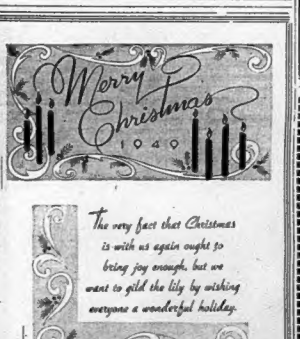 Merry
Christmas
1949
The very fact that Christmas
is with us again ought to
bring joy enough, but we
want to gild the lily by wishing
everyone a wonderful holiday.